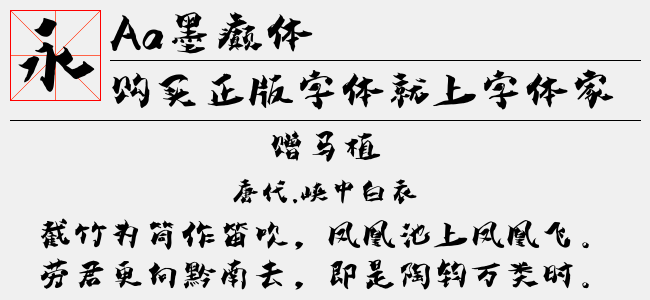 永
Aa墨癫体
购买正版字体就上字体家
赠马植
唐代.峡中白衣
截竹为筒作笛吹，凤凰池上凤凰飞。
劳君更向黔南去，即是陶钧万类时。